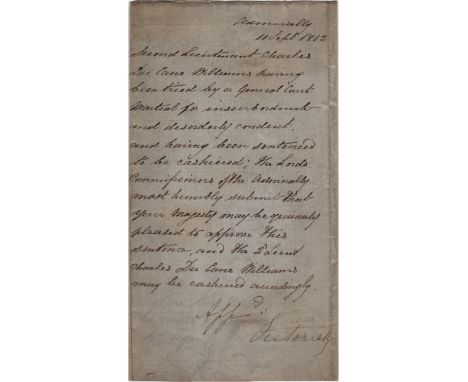 Admiralty
11 Sept 1812
Second Lieutenant Charles
Du Cane Williams having
been tried by a General Court
Martial for insubordinate
and disorderly conduct,
and having been sentenced
to be cashiered; the Lords
Commissioners of the Admiralty
most humbly submit that
your Majesty may be graciously
pleased to approve this
sentence, and the 2 Lieut
Charles Du Cane Williams
may be cashiered accordingly.
Appd:
Victoria R